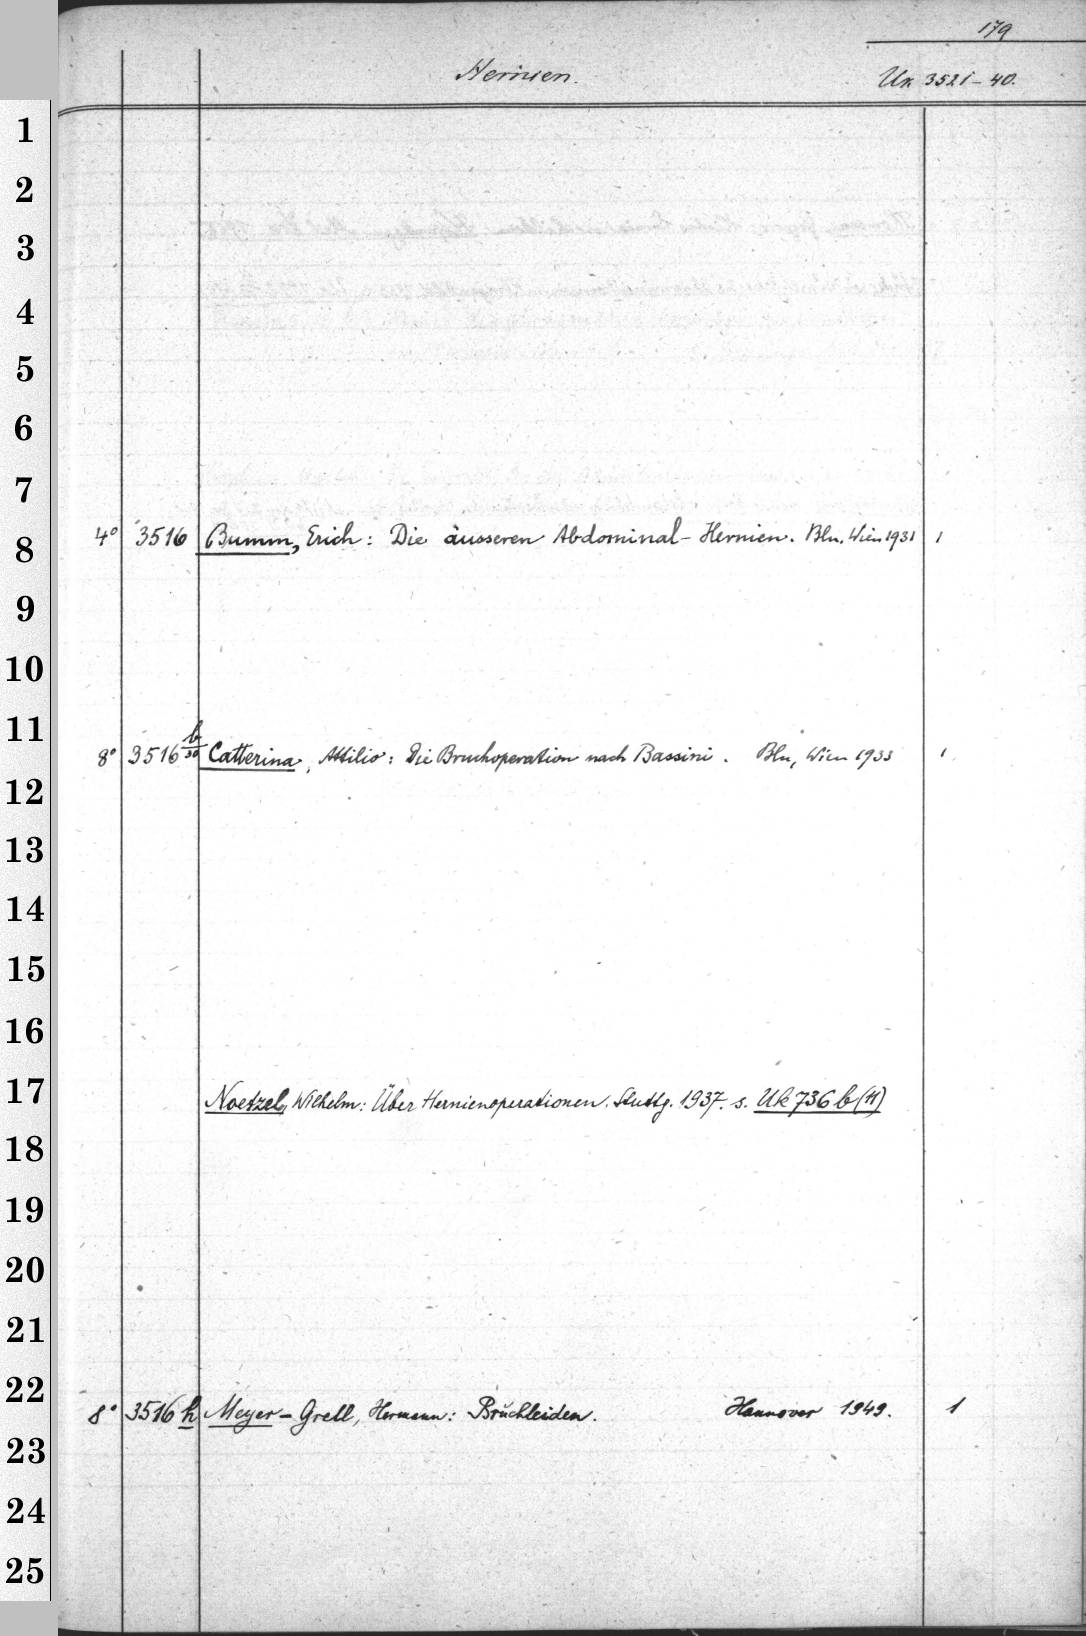 179
Hernien.
Uk 3521-40.
1
2
3
4
5
6
7
4° 3516 Bumm, Erich: Die äusseren Abdominal-Hernien. Bln, Wien 1931 1
8
9
10
11
8° 3516 b/30 Catterina, Attilio: Die Bruchoperation nach Bassini. Bln, Wien 1933 1
12
13
14
15
16
17
Noetzel, Wilhelm: Über Hernienoperationen. Stuttg. 1937. s. Uk 736 b (11)
18
19
20
21
22
8° 3516 h Meyer-Grell, Hermann: Bruchleiden. Hannover 1949. 1
23
24
25